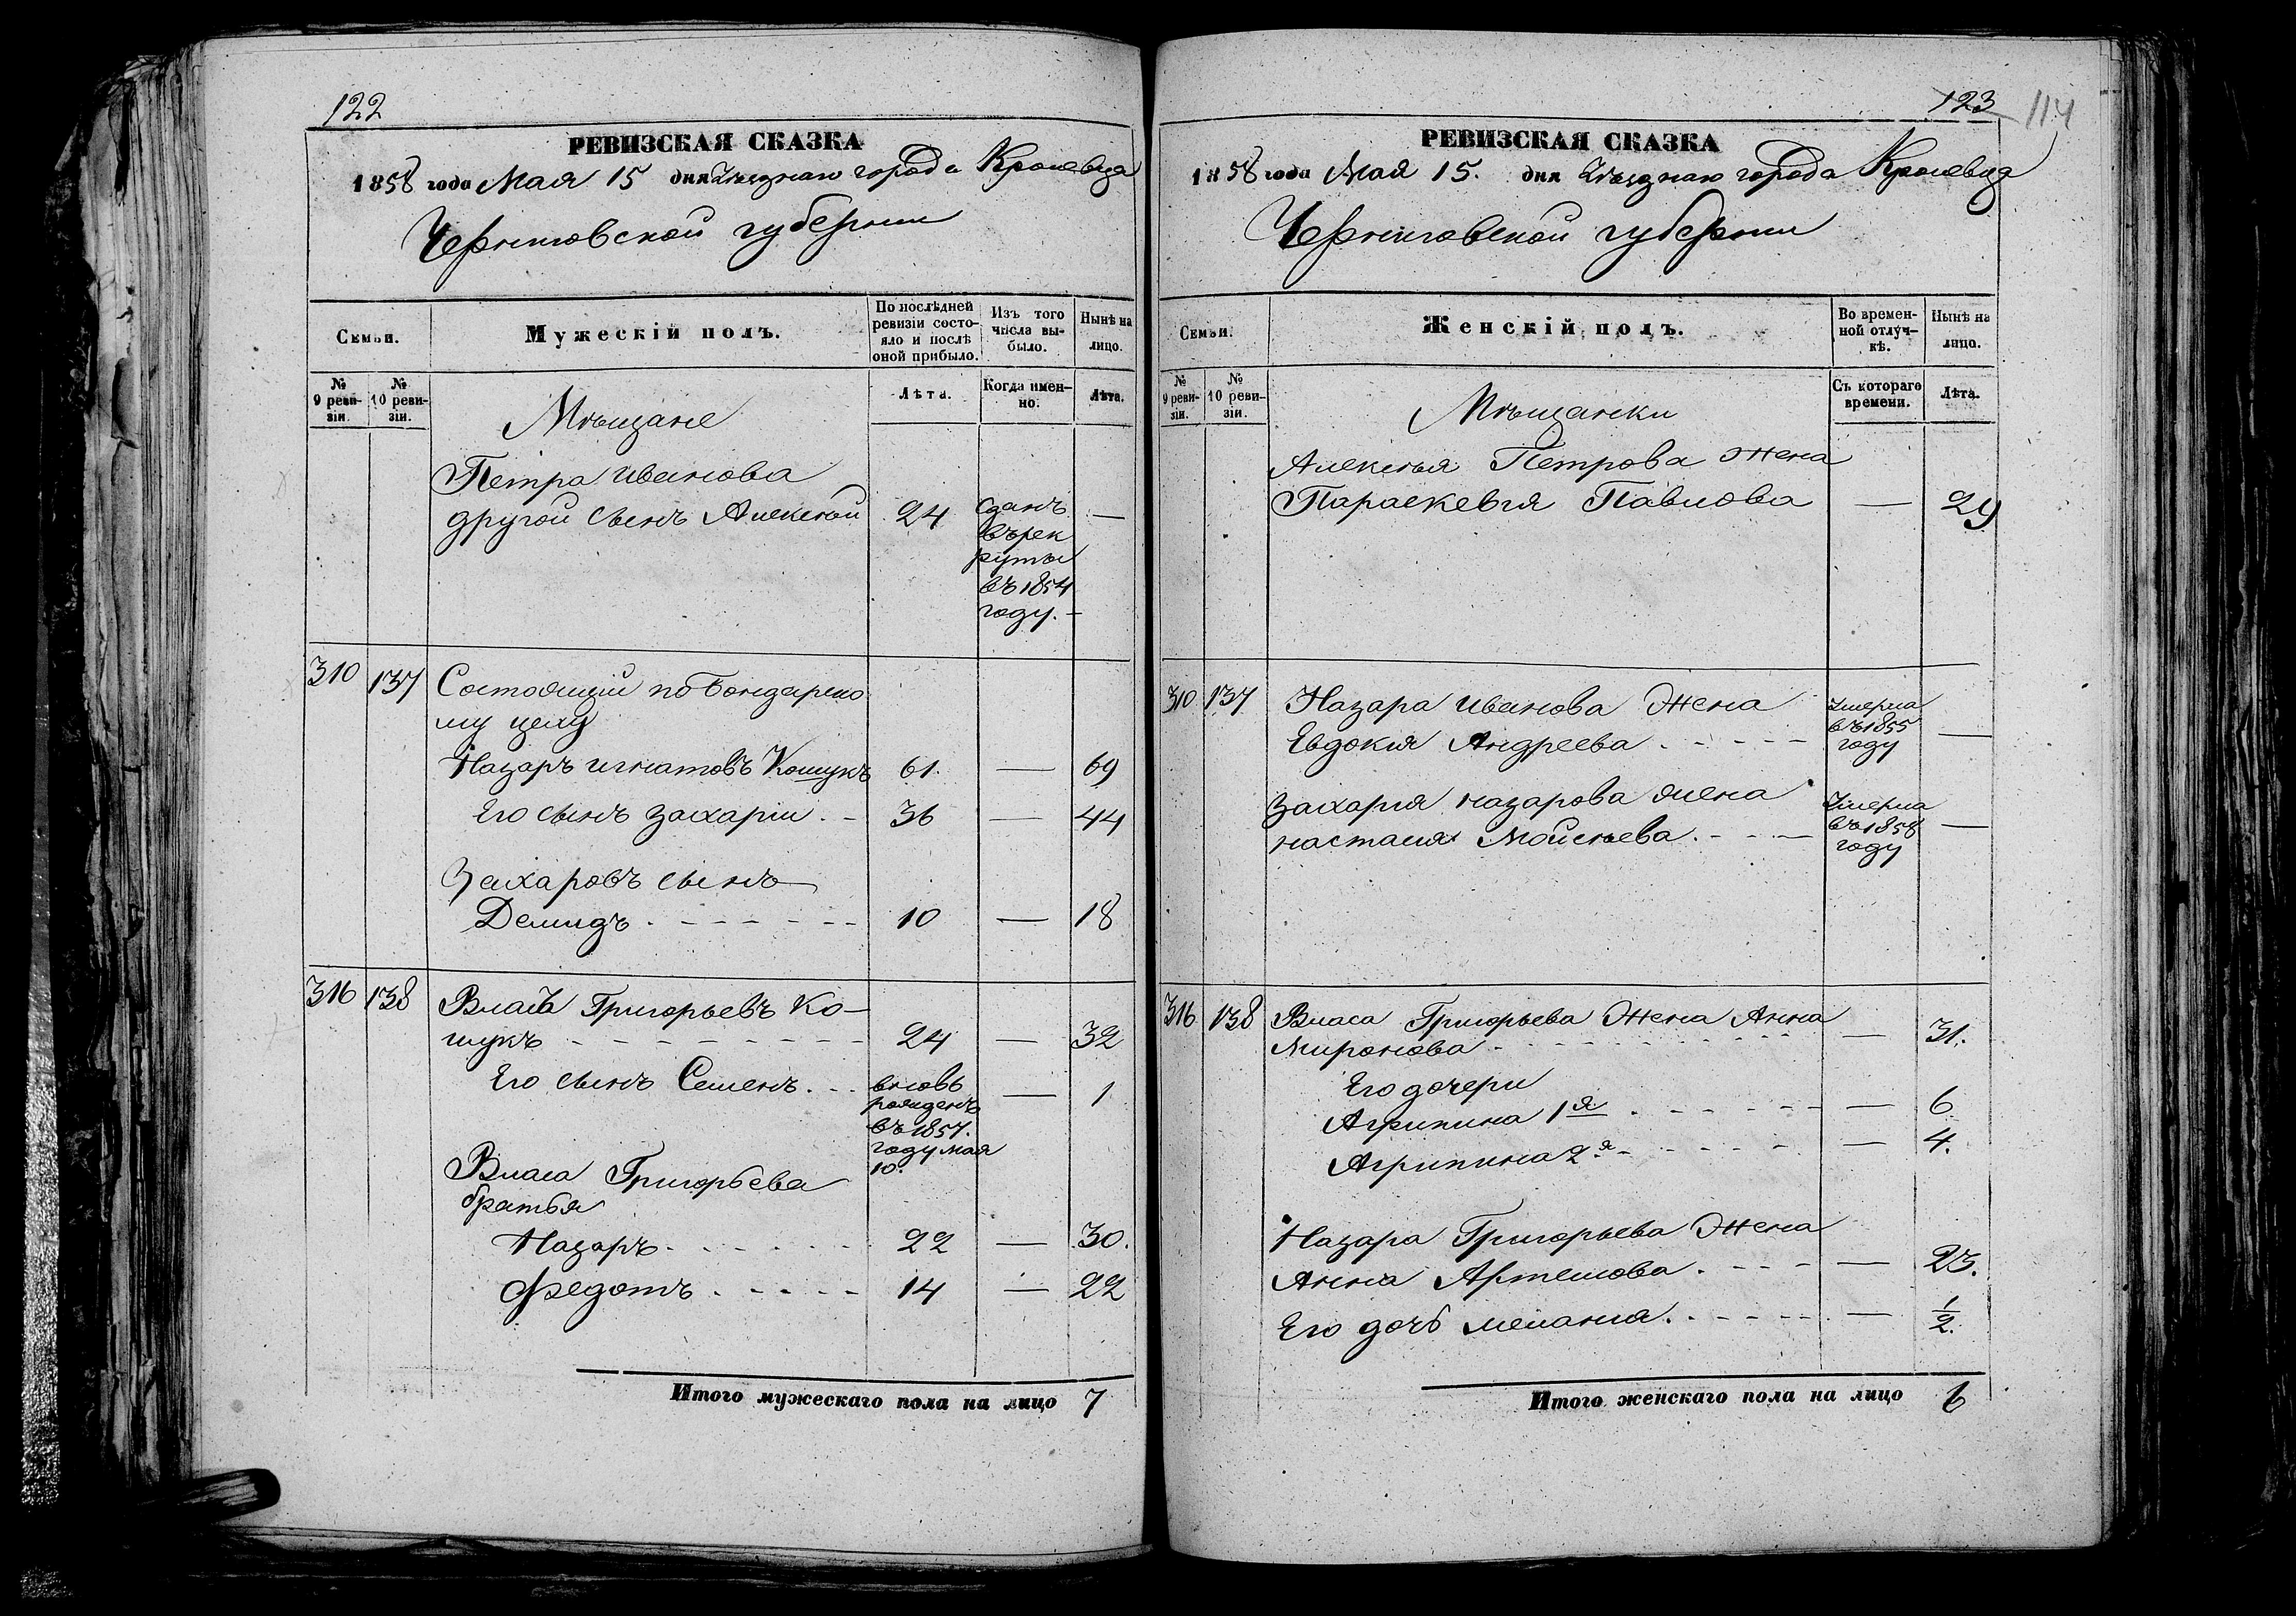 122
РЕВИЗСКАЯ СКАЗКА
1858 года Мая 15 дня Уѣзднаго города Кролевца
Черниговской губернии
Семьи.
Мужескій полъ.
По послѣдней ревизіи состо-
яло и послѣ
оной прибыло.
Изъ того
числа вы-
было.
Нынѣ на
лицо.
№
9 реви-
зіи.
№
10 реви-
зіи.
Лѣта.
Когда имен-
но.
Лѣта.
Мѣщане
Петра Иванова
другой сынъ Алексѣй 24 —
сданъ
въ рек
руты
въ 1854
году. —
310 137 Состоящій по бондарско
му цеху
Назаръ Игнатовъ Кошукъ 61. — 69
Его сынъ Захарій . – 36 — 44
Захаровъ сынъ
Демидъ . - - - - - - 10 — 18
316 138 Власъ Григорьевъ Ко-
шукъ - - - - - - - - 24 — 32
Его сынъ Семенъ . - - — 1
вновь
рожденъ
въ 1857.
году мая
10.
Власа Григорьева
братья
Назаръ. - - - - - - 22 — 30.
Федотъ . - - - - - 14 — 22
Итого мужескаго пола на лицо 7
123 114
РЕВИЗСКАЯ СКАЗКА
1858 года Мая 15. дня Уѣзднаго города Кролевца
Черниговской губернии
Семьи.
Женскій полъ.
Во времен-
ной отлуч-
кѣ.
Нынѣ на
лицо.
№
9 реви-
зіи.
№
10 реви-
зіи.
Съ котораго
времени.
Лѣта.
Мѣщанки
Алексѣя Петрова жена
Параскевія Павлова — 29
310 137 Назара Иванова жена
Евдокия Андреева . - - - - - —
Умерла
въ 1855
году
Захария Назарова жена
Настасия Мойсѣева . - - - —
Умерла
въ 1858
году
316 138 Власа Григорьева жена Анна
Миронова - - - - - - - - - - — 31.
Его дочери
Агрипина 1я . - - - - - - — 6
Агрипина 2я - - - - - - - — 4.
Назара Григорьева жена
Анна Артемова . - - - - — 23.
Его дочь Мелания . - - - - - — 1/2.
Итого женскаго пола на лицо 6